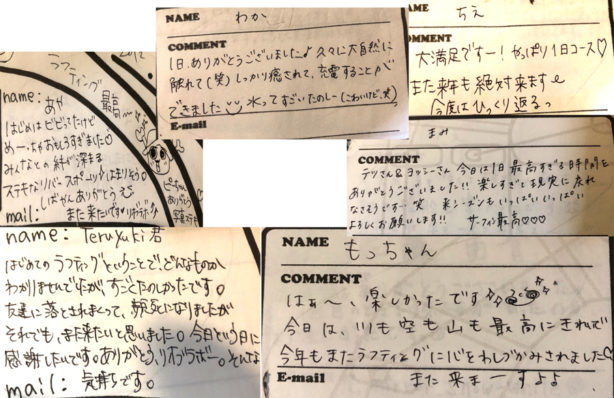 NAME わか
COMMENT
1日、ありがとうございました♪ 久々に大自然に
触れて(笑) しっかり癒されて、充電することが
できました 水ってすごいたのしー(こわいけど、笑)
E-mail
NAME ちえ
COMMENT
大満足ですー! やっぱり1日コース♡
また来年も絶対来ます
今度はひっくり返るっ
ラフ
ティング
name: あや 最高
はじめはビビってたけど
めーっちゃおもしろすぎました♡
みんなとの絆が深まる
ステキなリバースポーツ はまりそう。
しばやんありがとう
mail: また来たいです♡リボラボ
まみ
COMMENT
テツさん&ヨッシーさん 今日は1日最高すぎる日
ありがとうございました!! 楽しすぎて現実に戻れ
なさそうです…笑 来シーズンもいっぱいいっぱい
よろしくお願いします!! サーフィン最高♡♡♡
name: Teruyuki君
はじめてのラフティングということで、どんなものか
わかりませんでしたが、すごくたのしかったです。
友達に落とされまくって、瀕死になりましたが
それでも、また来たいと思いました。今日という日に
感謝したいです。ありがとう、リボラボー。そんな
mail: 気持ちです。
NAME もっちゃん
COMMENT
はぁ〜、楽しかったです
今日は、川も空も山も最高にきれいで
今年もまたラフティングに心をわしづかみされました♡
E-mail また来まーすよよ